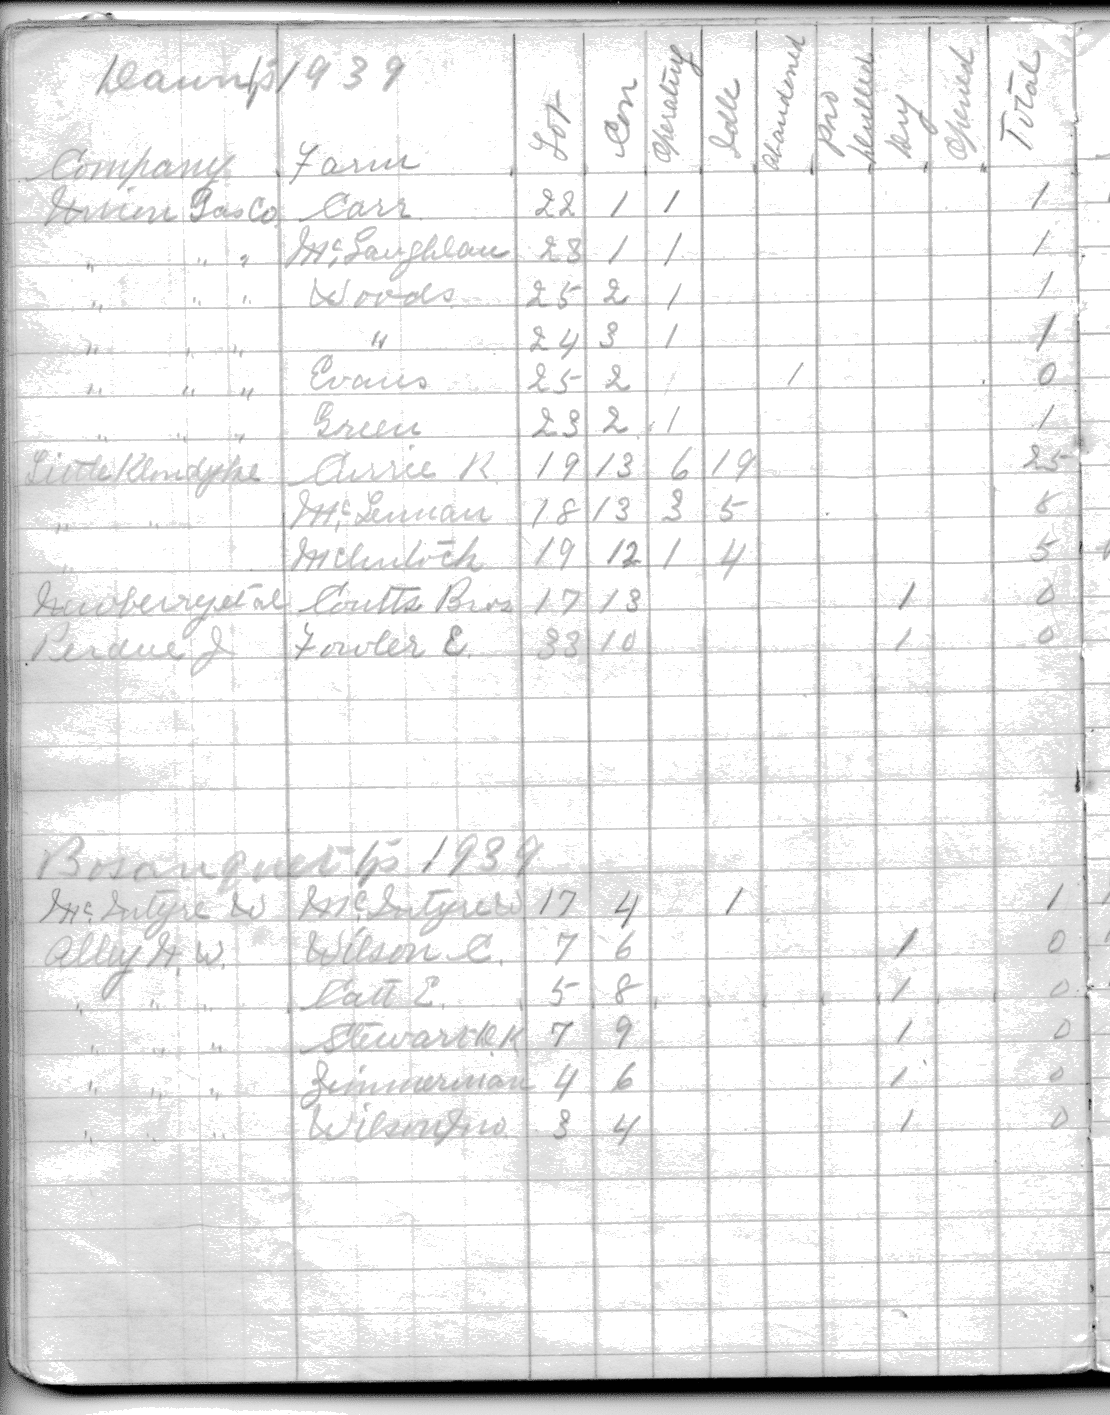 Dawn Tp 1939
Company Farm Lot Con Operating Idle Abandoned Pro Drilled Dry Opened Total
Union Gas Co Carr 22 1 1 1
" " " McLaughlan 23 1 1 1
" " " Woods 25 2 1 1
" " " " 24 3 1 1
" " " Evans 25 2 1 0
" " " Green 23 2 1 1
Little Klondyke Currie R 19 13 6 19 25
" " McLennan 18 13 3 5 8
" 19 12 1 4 5
Coutts Bros 17 13 1 0
Perdue J Fowler E. 33 10 1 0
Bosanquet Tp 1939
McIntyre W McIntyre W 17 4 1 1
Alley H. W. Wilson C. 7 6 1 0
" " " Catt E. 5 8 1 0
" " " Stewart R.K 7 9 1 0
" " " Zimmerman 4 6 1 0
" " " Wilson Jno 3 4 1 0